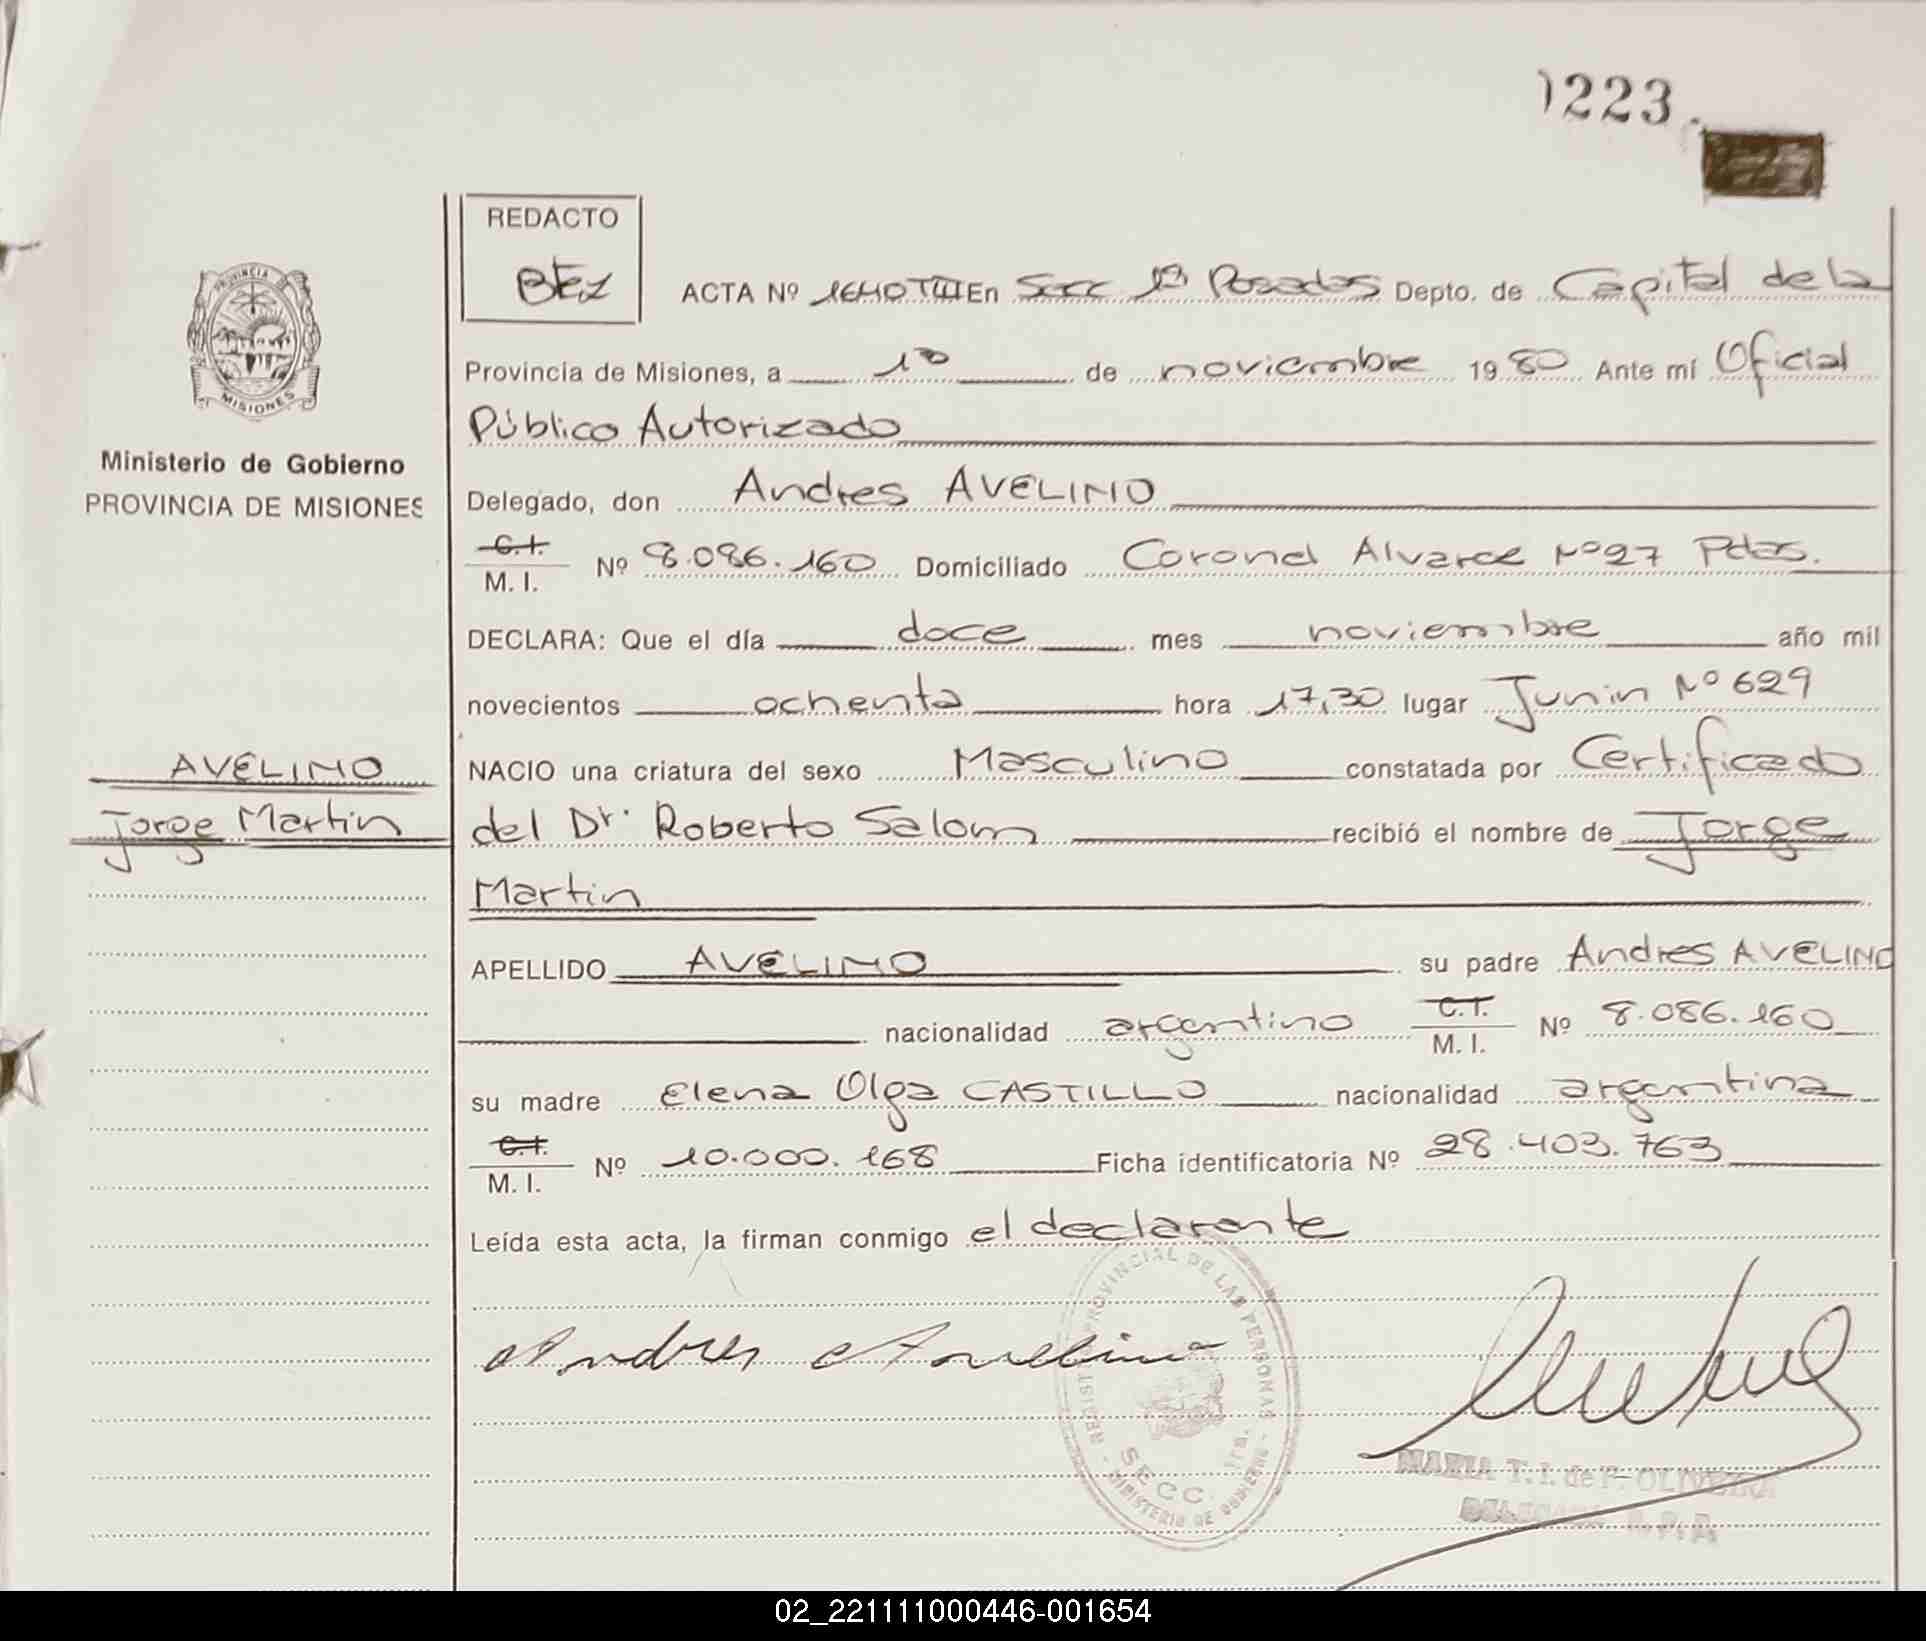 1223.
REDACTO
BÉez
ACTA Nº 1640 TIII En Secc 1ª Posadas Depto. de Capital de la
Provincia de Misiones, a 1º de noviembre 1980 Ante mí Oficial
Público Autorizado
Delegado, don Andres AVELINO
C.I. M. I. Nº 8.086.160 Domiciliado Coronel Alvarez Nº27 Pdas.
DECLARA: Que el día doce mes noviembre año mil
novecientos ochenta hora 17,30 lugar Junin Nº 629
NACIO una criatura del sexo Masculino constatada por Certificado
del Dr. Roberto Salom recibió el nombre de Jorge
Martin
APELLIDO AVELINO su padre Andres AVELINO
nacionalidad argentino C.I. M. I. Nº 8.086.160
su madre Elena Olga CASTILLO nacionalidad argentina
C.I. M. I. Nº 10.000.168 Ficha identificatoria Nº 28.403.763
Leída esta acta, la firman conmigo el declarante
Andres Avelino
REGIST PROVINCIAL DE LAS PERSONAS - MINISTERIO DE GOBIERNO -
SECC. 1ra.
MARIA T. I. de F. OLIVEIRA
DELEGADA R. P. P.
PROVINCIA
MISIONES
Ministerio de Gobierno
PROVINCIA DE MISIONES
AVELINO
Jorge Martin
02_221111000446-001654